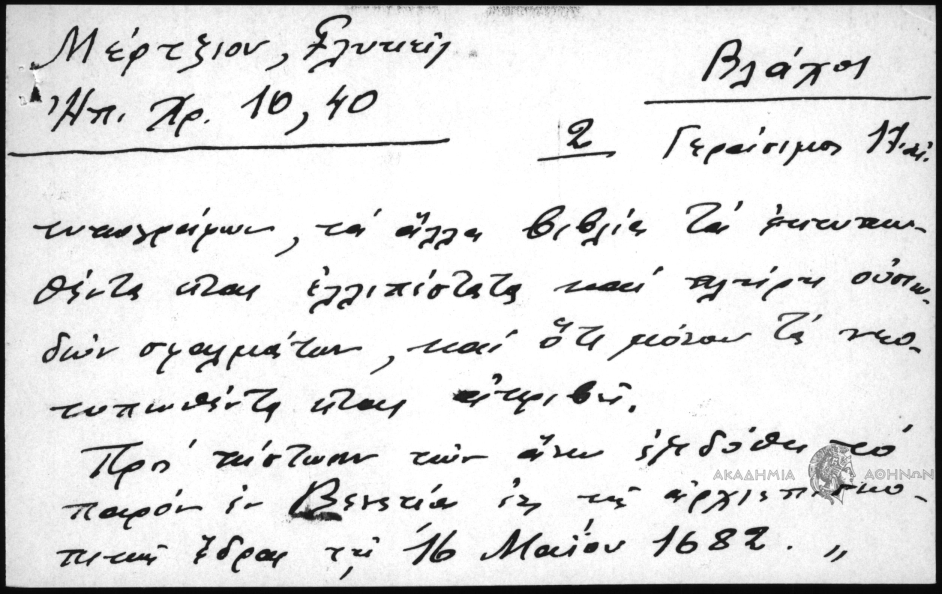 Μέρτζιον, Γλυκεῖς
Ἠπ. Χρ. 10, 40
Βλάχοι
2 Γεράσιμος 17. αἰ.
τυπογράφων, τά ἄλλα βιβλία τά ἐκτυπω-
θέντα εἶναι ἐλλιπέστατα καί πλήρη οὐσιω-
δῶν σφαλμάτων, καί ὅτι μόνον τά νεο-
τυπωθέντα εἶναι ἀκριβῆ.
Πρός πίστωσιν τῶν ἄνω ἐξεδόθη τό
παρόν ἐν Βενετίᾳ ἐκ τῆς ἀρχιεπισκο-
πικῆς ἕδρας τῇ 16 Μαΐου 1682. „
ΑΚΑΔΗΜΙΑ ΑΘΗΝΩΝ